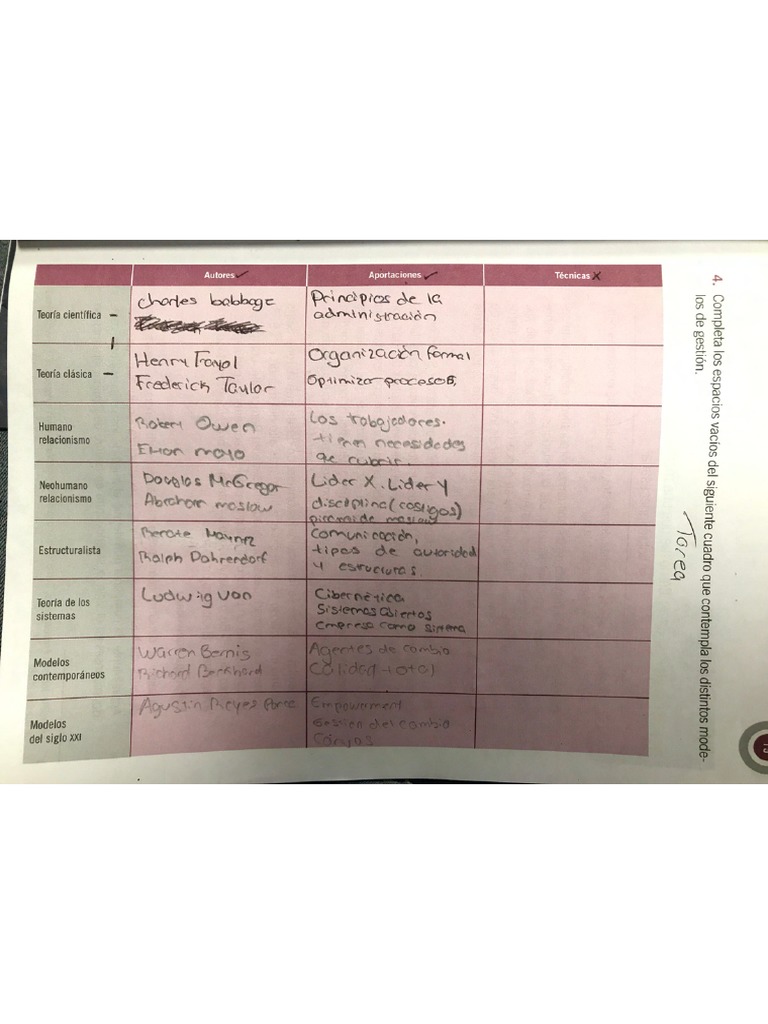 4. Completa los espacios vacíos del siguiente cuadro que contempla los distintos mode-
los de gestión.
Tarea
Autores ✓ Aportaciones ✓ Técnicas X
Teoría científica –
Charles babbage
Principios de la
administración
Teoría clásica –
Henry Frayol
Frederick Taylor
Organización formal
Optimizar procesos.
Humano
relacionismo
Robert Owen
Elton mayo
Los trabajadores.
tienen necesidades
que cubrir.
Neohumano
relacionismo
Douglas McGregor
Abraham maslow
Lider X. Lider Y
disciplina (castigos)
piramide maslow
Estructuralista
Renate Mayntz
Ralph Dahrendorf
Comunicación,
tipos de autoridad
y estructuras.
Teoría de los
sistemas
Ludwig von
Cibernética
Sistemas abiertos
empresa como sistema
Modelos
contemporáneos
Warren Bernis
Richard Beckhard
Agentes de cambio
Calidad total
Modelos
del siglo XXI
Agustin Reyes Ponce
Empowerment
Gestion del cambio